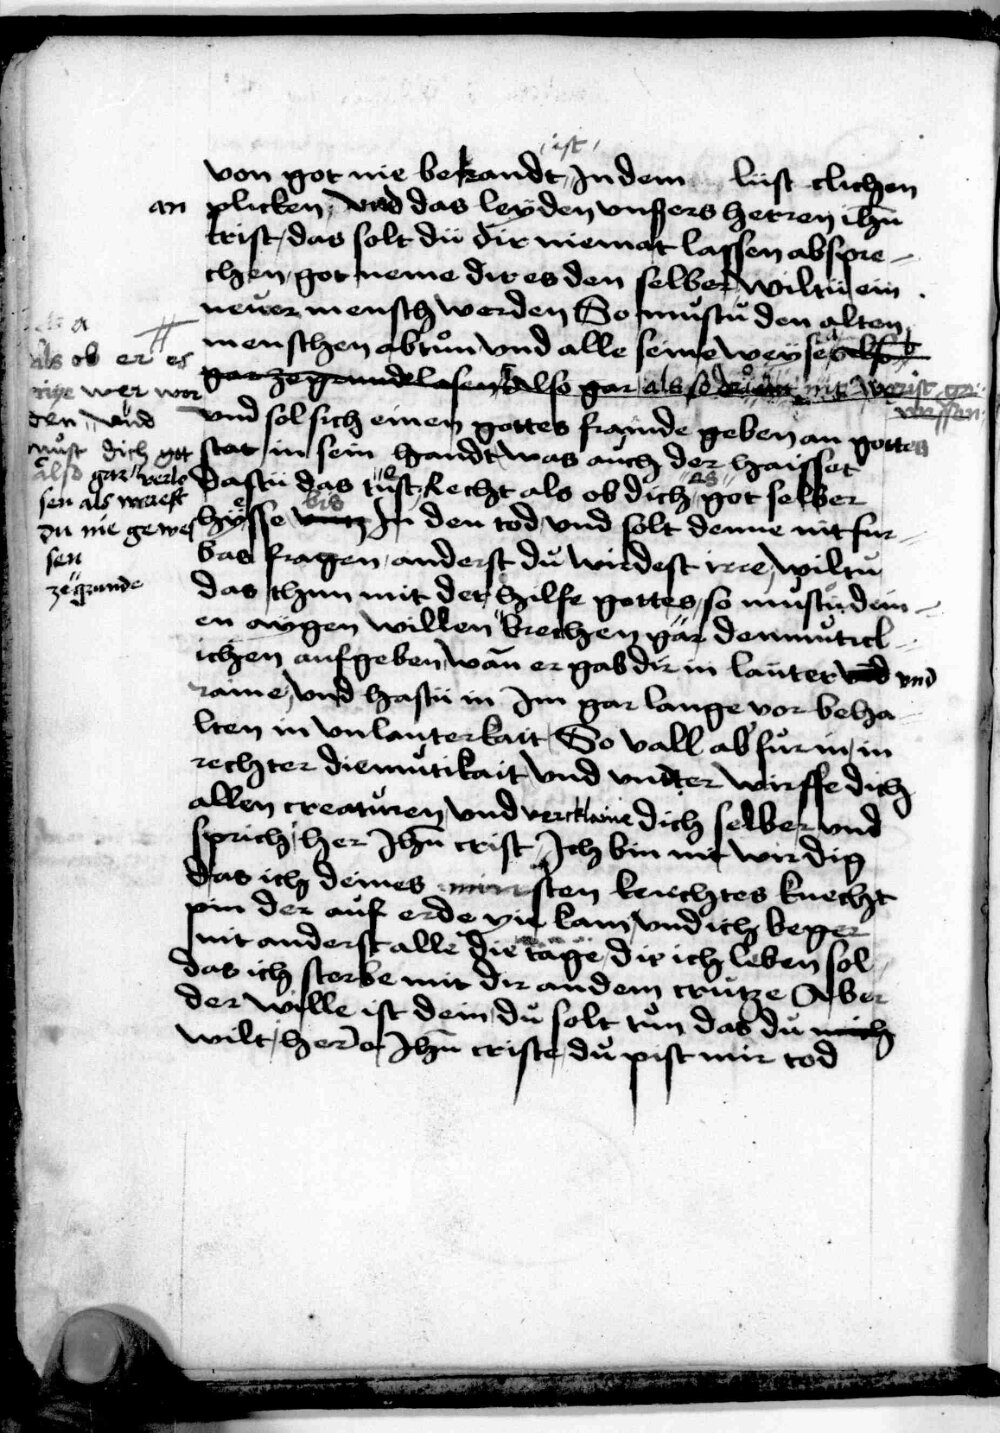 ist
von got nie bekandt In dem lüst clichen
an plicken vnd das leyden vnsers herren ihū
crist das solt dü dir niemāt lassen abspre-
chen got neme dir es den selber wiltü ein
neůer mensch werden So můstů den alten
menschen abtůn vnd alle seine weyse also
gar ze grunde lasen also gar als so nit
und sol sich einen gottes fraunde geben an gottes
stat in sein handt was aůch der haisset
dastü das tüst Recht als ob dich es got selber
hyesse bis vntz In den tod vnd solt denne nit fur-
bas fragen anderst dů wirdest irre wiltů
das thun mit der hilfe gottes so můstů dein-
en aygen willen brechen gar demmůticl-
ichen aufgeben wān er gab dir in laüter vnd vnd
raine vnd hastü in Im gar lange vor beha-
lten in vnlauterkait So vall ab fůr in in
rechter diemůtikait vnd vndter wirffe dich
allen creatůren vnd verclaine dich selber vnd
sprich her Ihū crist Ich bin nit wirdig
das ich deines minsten knechtes knecht
pin der auf erde ye kam vnd ich beger
nit anderst alle die tage die ich leben sol
das ich sterbe mit dir an dem crůtze Aber
der wille ist dein dů solt tůn das dů mich
wilt herre Ihū criste dů pist mir tod
als ob er es
nye wer wor
den vnd
můst dich got
also gar verlo
sen als werest
du nie gewes
sen
ze grunde